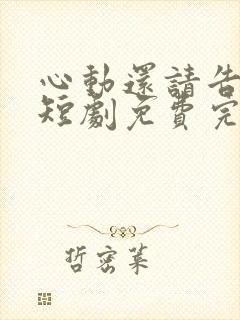 心動還請告
短劇免費完
哲密菜